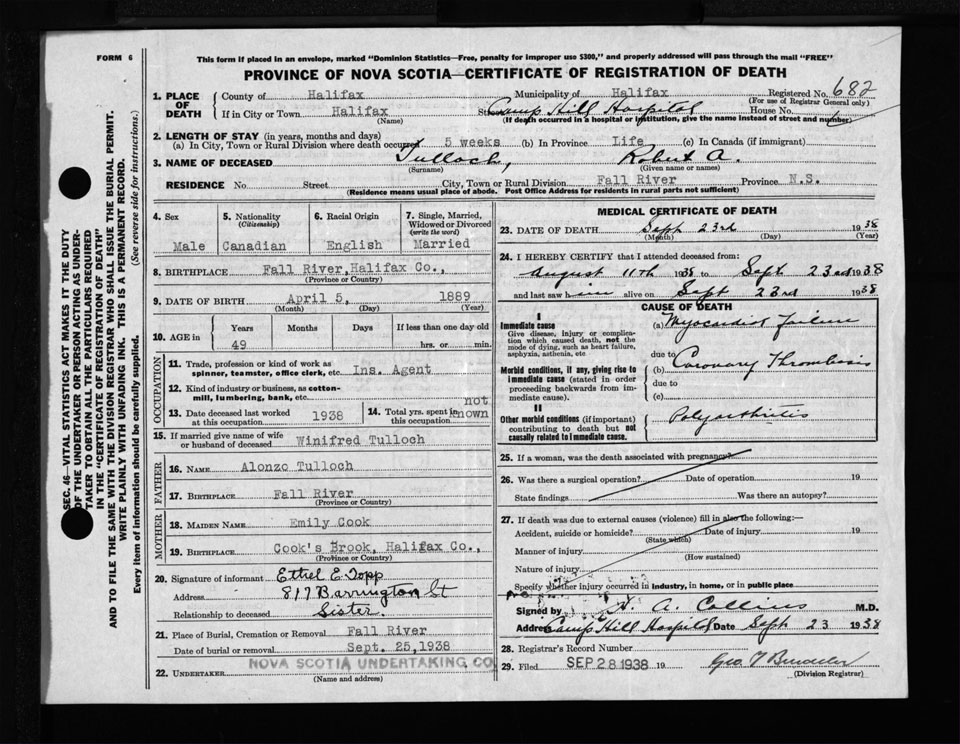 FORM 6
This form if placed in an envelope, marked "Dominion Statistics—Free, penalty for improper use $300," and properly addressed will pass through the mail "FREE"
PROVINCE OF NOVA SCOTIA—CERTIFICATE OF REGISTRATION OF DEATH
1. PLACE OF DEATH County of Halifax Municipality of Halifax Registered No. 682
(For use of Registrar General only)
If in City or Town Halifax Street Camp Hill Hospital House No.
(Name) (If death occurred in a hospital or institution, give the name instead of street and number)
2. LENGTH OF STAY (in years, months and days)
(a) In City, Town or Rural Division where death occurred 5 weeks (b) In Province Life (c) In Canada (if immigrant)
3. NAME OF DECEASED Tulloch, Robert A.
(Surname) (Given name or names)
RESIDENCE No. Street City, Town or Rural Division Fall River Province N.S.
(Residence means usual place of abode. Post Office Address for residents in rural parts not sufficient)
SEC. 46—VITAL STATISTICS ACT MAKES IT THE DUTY
OF THE UNDERTAKER OR PERSON ACTING AS UNDER-
TAKER TO OBTAIN ALL THE PARTICULARS REQUIRED
IN THE "CERTIFICATE OF REGISTRATION OF DEATH"
AND TO FILE THE SAME WITH THE DIVISION REGISTRAR WHO SHALL ISSUE THE BURIAL PERMIT.
WRITE PLAINLY WITH UNFADING INK. THIS IS A PERMANENT RECORD.
Every item of information should be carefully supplied. (See reverse side for instructions.)
4. Sex 5. Nationality 6. Racial Origin 7. Single, Married, Widowed or Divorced
(Citizenship) (write the word)
Male Canadian English Married
8. BIRTHPLACE Fall River, Halifax Co.,
(Province or Country)
9. DATE OF BIRTH April 5, 1889
(Month) (Day) (Year)
10. AGE in Years Months Days If less than one day old
49 hrs. or min.
OCCUPATION
11. Trade, profession or kind of work as
spinner, teamster, office clerk, etc. Ins. Agent
12. Kind of industry or business, as cotton-
mill, lumbering, bank, etc.
13. Date deceased last worked at this occupation 1938 14. Total yrs. spent in this occupation not known
15. If married give name of wife
or husband of deceased Winifred Tulloch
FATHER
16. NAME Alonzo Tulloch
17. BIRTHPLACE Fall River
(Province or Country)
MOTHER
18. MAIDEN NAME Emily Cook
19. BIRTHPLACE Cook's Brook, Halifax Co.,
(Province or Country)
20. Signature of informant Ethel E Topp
Address 817 Barrington St
Relationship to deceased Sister.
21. Place of Burial, Cremation or Removal Fall River
Date of burial or removal Sept. 25, 1938
NOVA SCOTIA UNDERTAKING CO
22. UNDERTAKER
(Name and address)
MEDICAL CERTIFICATE OF DEATH
23. DATE OF DEATH Sept 23rd 1938
(Month) (Day) (Year)
24. I HEREBY CERTIFY that I attended deceased from:
August 11th 1938 to Sept 23rd 1938
and last saw him alive on Sept 23rd 1938
CAUSE OF DEATH
I
Immediate cause (a) Myocardial failure
Give disease, injury or complica-
tion which caused death, not the
mode of dying, such as heart failure,
asphyxia, asthenia, etc
due to
Morbid conditions, if any, giving rise to (b) Coronary Thrombosis
immediate cause (stated in order due to
proceeding backwards from im-
mediate cause). (c)
II
Other morbid conditions (if important) Polyarthritis
contributing to death but not
causally related to immediate cause.
25. If a woman, was the death associated with pregnancy?
26. Was there a surgical operation? Date of operation 19
State findings Was there an autopsy?
27. If death was due to external causes (violence) fill in also the following:—
Accident, suicide or homicide? Date of injury 19
(State which)
Manner of injury
(How sustained)
Nature of injury
Specify whether injury occurred in industry, in home, or in public place
Signed by H. A. Collins M.D.
Address Camp Hill Hospital Date Sept 23 1938
28. Registrar's Record Number
29. Filed SEP 28 1938 19
(Division Registrar)